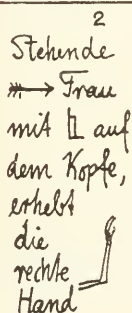 2
Stehende
Frau
mit auf
dem Kopfe,
erhebt
die
rechte
Hand